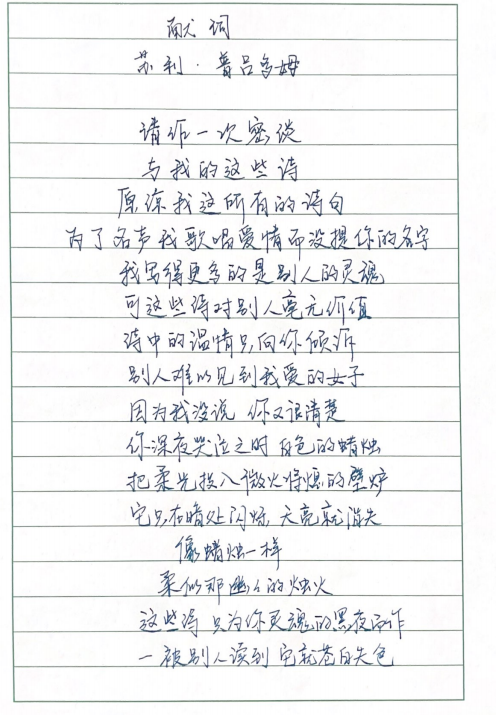 献词
苏利·普吕多姆
请作一次密谈
与我的这些诗
原谅我这所有的诗句
为了名声我歌唱爱情而没提你的名字
我写得更多的是别人的灵魂
可这些诗对别人毫无价值
诗中的温情只向你倾诉
别人难以见到我爱的女子
因为我没说 你又很清楚
你深夜哭泣之时 白色的蜡烛
把柔光投入微火将熄的壁炉
它只在暗处闪烁 天亮就消失
像蜡烛一样
柔似那幽幽的烛火
这些诗 只为你灵魂的黑夜而作
一被别人读到 它就苍白失色